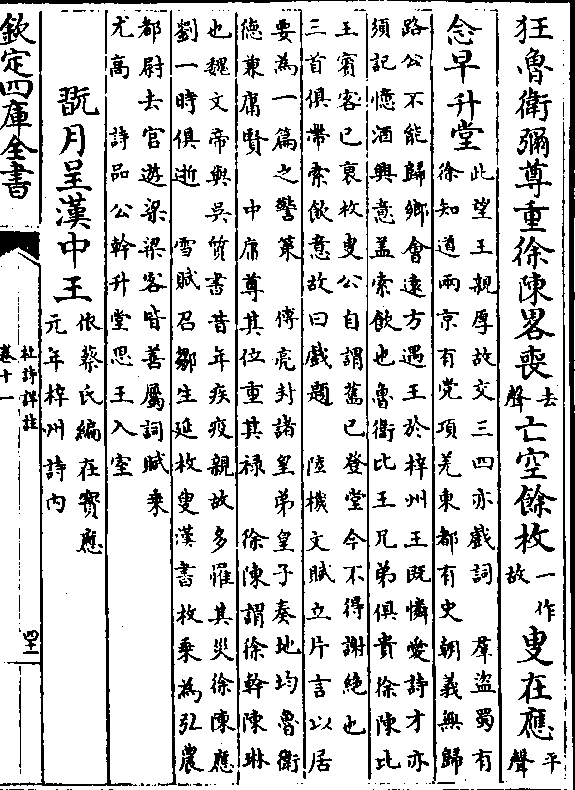 狂魯衛彌尊重徐陳畧喪去聲亡空餘枚一作故叟在應平聲
念早升堂
此望王親厚故交三四亦戲詞 羣盜蜀有
徐知道兩京有党項羌東都有史朝義無歸
路公不能歸鄉會遠方遇王於梓州王既憐愛詩才亦
須記憶酒興意盖索飲也魯衛比王兄弟俱貴徐陳比
王賓客已衰枚叟公自謂舊已登堂今不得謝絶也
三首俱帶索飲意故曰戲題 陸機文賦立片言以居
要為一篇之警策 傅亮封諸皇弟皇子奏地均魯衛
德兼庸賢 中庸尊其位重其禄 徐陳謂徐幹陳琳
也魏文帝與吳質書昔年疾疫親故多罹其災徐陳應
劉一時俱逝 雪賦召鄒生延枚叟漢書枚乗為弘農
都尉去官遊梁梁客皆善屬詞賦乗
尤高 詩品公幹升堂思王入室
翫月呈漢中王
依蔡氏編在寳應
元年梓州詩内
欽定四庫全書
杜詩詳註
卷十一